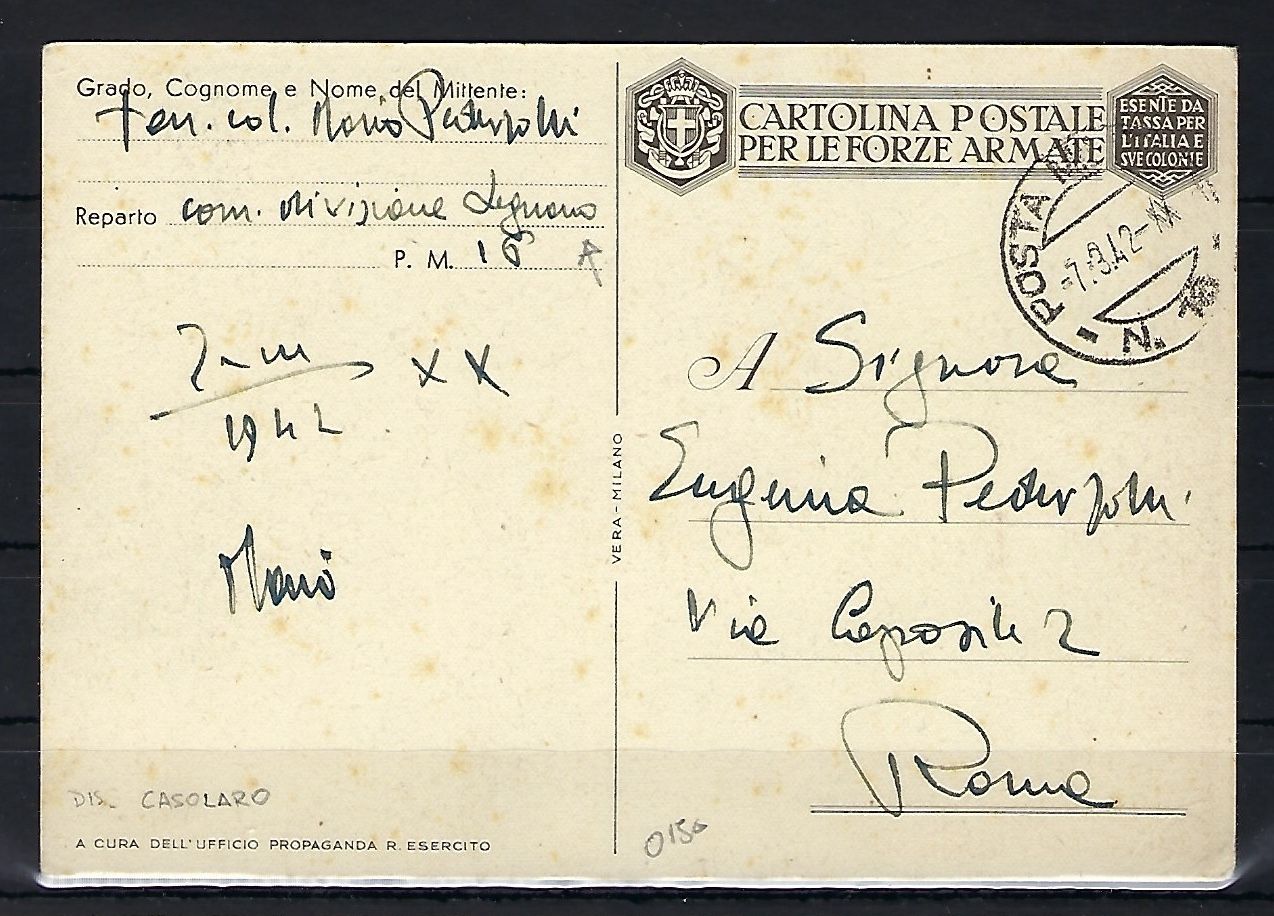 Grado, Cognome e Nome del Mittente:
Ten. col. Mario Pederzolli
Reparto com. divisione Legnano
P. M. 16 A
7-III XX
1942
Mario
DIS. CASOLARO
A CURA DELL'UFFICIO PROPAGANDA R. ESERCITO
VERA - MILANO
CARTOLINA POSTALE
PER LE FORZE ARMATE
ESENTE DA
TASSA PER
L'ITALIA E
SVE COLONIE
POSTA
-7.3.42-XX
N.
A Signora
Eugenia Pederzolli
Via Caposile 2
Roma